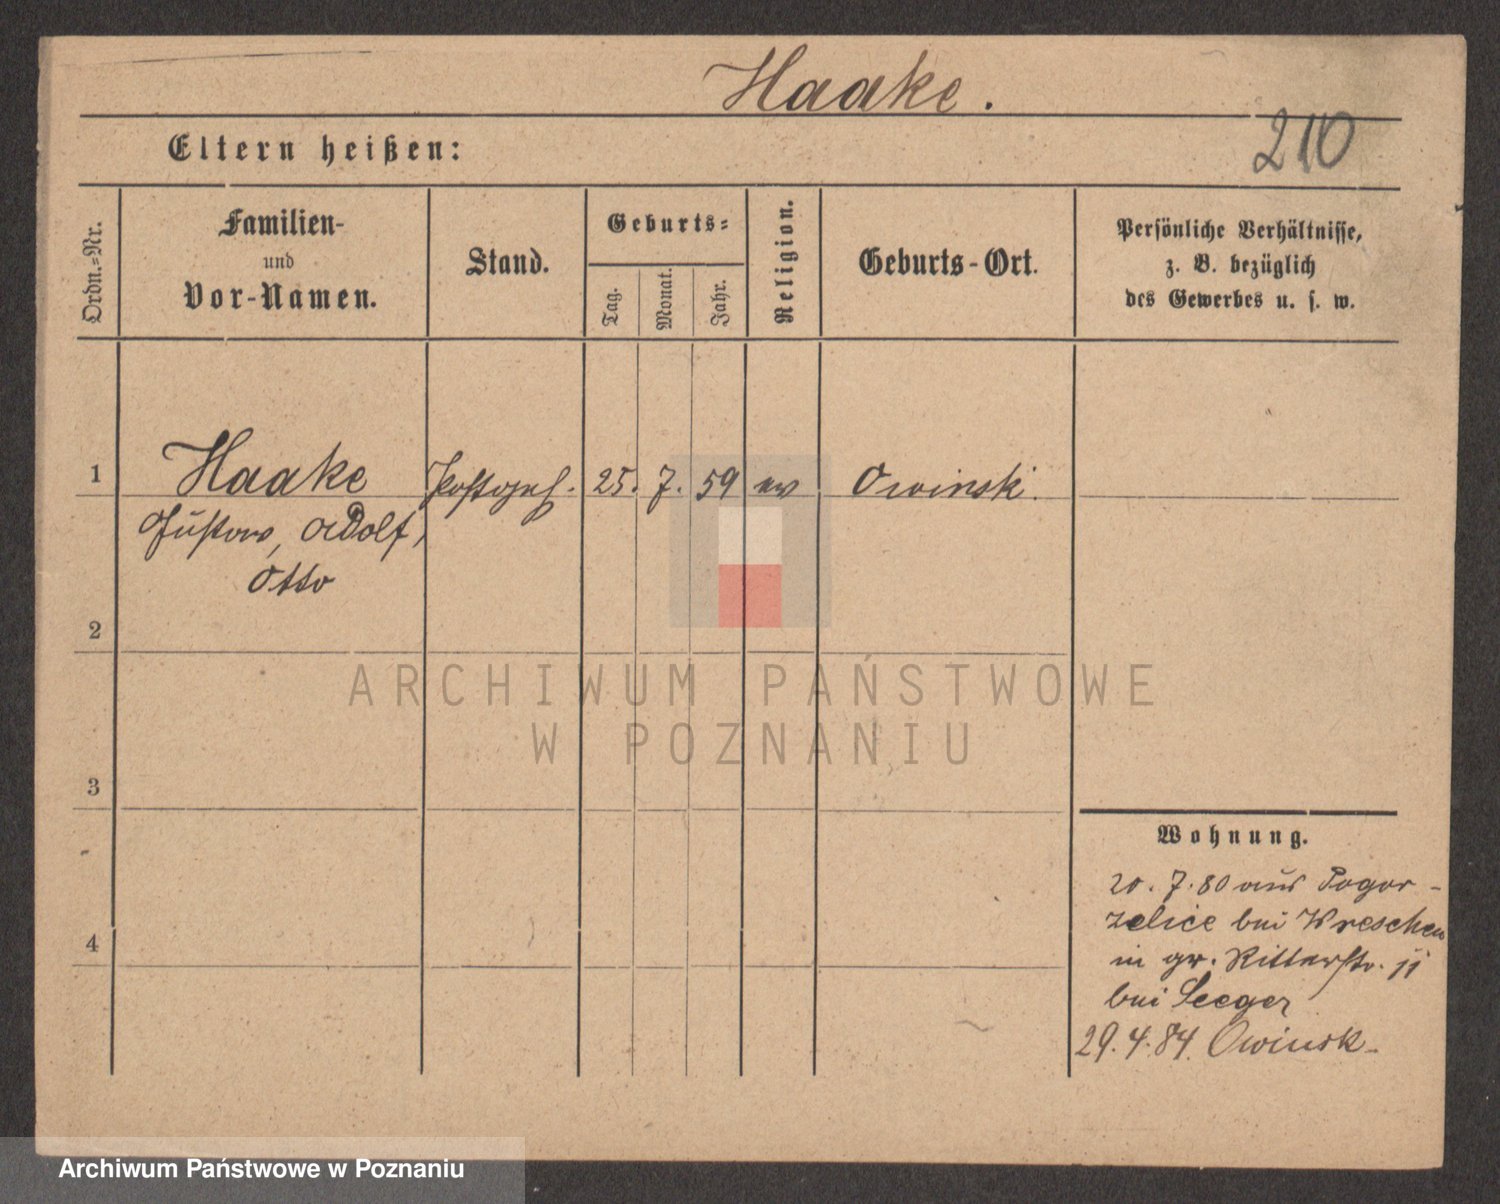 Haake.
210
Eltern heißen:
Ordn.-Nr.
Familien-
und
Vor-Namen.
Stand.
Geburts-
Tag.
Monat.
Jahr.
Religion.
Geburts-Ort.
Persönliche Verhältnisse,
z. B. bezüglich
des Gewerbes u. s. w.
1
Haake
Gustav, Adolf,
Otto
Postgeh.
25.
7.
59
ev
Owinsk.
2
3
4
Wohnung.
20. 7. 80 aus Pogor-
zelice bei Wreschen
in gr. Ritterstr. 11
bei Seeger
29. 4. 84 Owinsk
ARCHIWUM PAŃSTWOWE
W POZNANIU
Archiwum Państwowe w Poznaniu